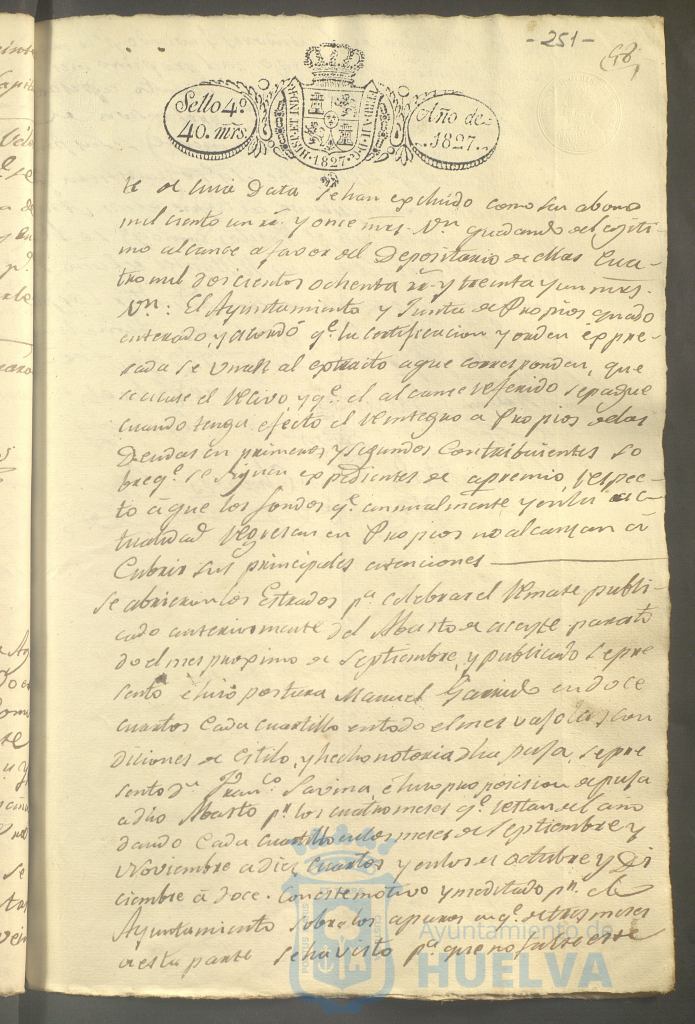 - 251 -
Sello 4º
40. mrs.
HISP. ET IND. R.
1827
Año de
1827.
de cuia Data se han excluido como sin abono
mil ciento un rs. y once mrs. vn quedando el legiti-
mo alcance a favor del Depositario de ellas Cua-
tro mil doscientos ochenta rs. y treinta y un mrs.
Vn: El Ayuntamiento y Junta de Propios quedó
enterado, y acordó qe. la certificacion y orden expre-
sada se unan al extracto a que corresponden, que
se acuse el recivo y qe. el alcance referido se pague
cuando tenga efecto el reintegro a Propios de las
Deudas en primeros y segundos Contribuientes so
bre qe. se siguen expedientes de apremio, respec-
to á que los fondos qe. anualmente y en la ac-
tualidad regresan en Propios no alcansan á
Cubrir sus principales atenciones
Se abrieron los Estrados pa. celebrar el remate publi-
cado anteriormente del Abasto de aceyte para to
do el mes proximo de Septiembre, y publicado se pre
sentó é hiso postura Manuel Garrido en doce
cuartos cada cuartillo en todo el mes vajo las con
diciones de estilo, y hecho notoria dha pusa, se pre
sentó Dn. Franco. Savina, é hiso proposicion de pusa
a dho Abasto pr. los cuatro meses qe. restan del año
dando cada cuartillo en los meses de Septiembre y
Noviembre a dies cuartos y en los de octubre y Di
ciembre á doce. Con este motivo y meditado pr. el
Ayuntamiento sobre los apuros en qe. de tres meses
a esta parte se ha visto pa. que no falte este
Ayuntamiento de
HUELVA